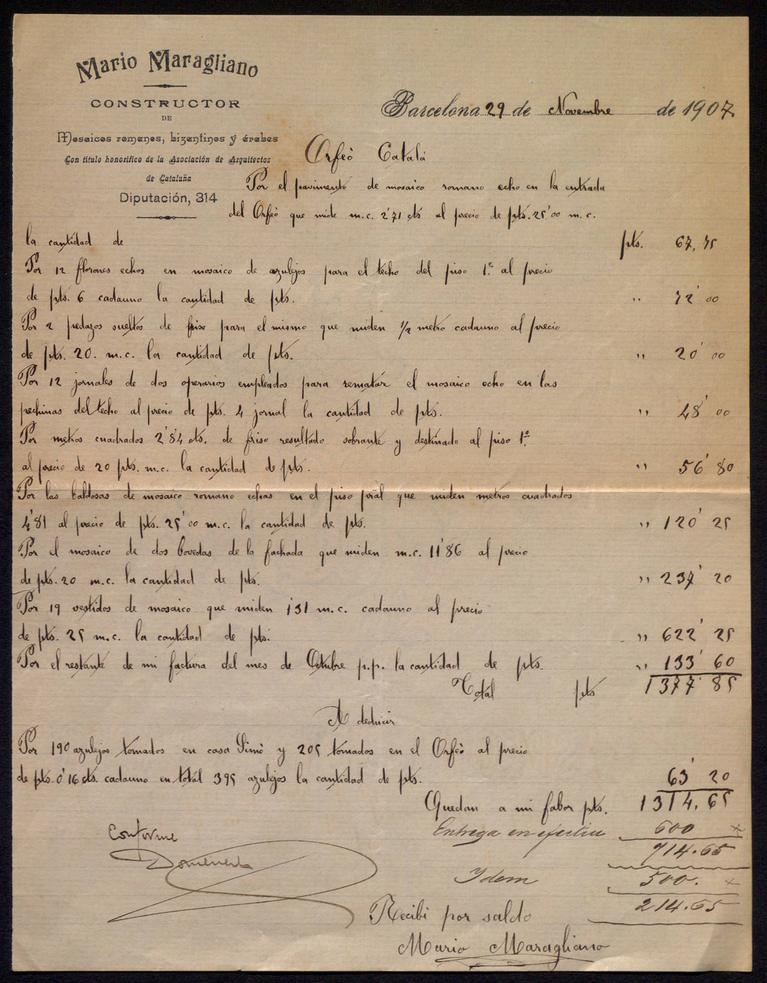 Mario Maragliano
CONSTRUCTOR
DE
Mosaicos romanos, bizantinos y árabes
Con título honorífico de la Asociación de Arquitectos
de Cataluña
Diputación, 314
Barcelona 29 de Novembre de 1907.
Orfeò Catalá
Por el pavimento de mosaico romano echo en la entrada
del Orfeò que mide m.c. 2'71 cts al precio de pts. 25'00 m.c.
la cantidad de pts. 67,75
Por 12 florones echos en mosaico de azulejos para el techo del piso 1º al precio
de pts. 6 cadauno la cantidad de pts. " 72'00
Por 2 pedazos sueltos de friso para el mismo que miden 1/2 metro cadauno al precio
de pts. 20. m.c. la cantidad de pts. " 20'00
Por 12 jornales de dos operarios empleados para rematar el mosaico echo en las
pechinas del techo al precio de pts. 4 jornal la cantidad de pts. " 48'00
Por metros cuadrados 2'84 cts. de friso resultado sobrante y destinado al piso 1º
al precio de 20 pts. m.c. la cantidad de pts. " 56'80
Por las baldosas de mosaico romano echas en el piso pral que miden metros cuadrados
4'81 al precio de pts. 25'00 m.c. la cantidad de pts. " 120'25
Por el mosaico de dos bovedas de la fachada que miden m.c. 11'86 al precio
de pts. 20 m.c. la cantidad de pts. " 237'20
Por 19 vestidos de mosaico que miden 1'31 m.c. cadauno al precio
de pts. 25 m.c. la cantidad de pts. " 622'25
Por el restante de mi factura del mes de Octubre p.p. la cantidad de pts. " 133'60
Total pts 1377'85
A deducir
Por 190 azulejos tomados en casa Simò y 205 tomados en el Orfeò al precio
de pts. 0'16 cts. cadauno en total 395 azulejos la cantidad de pts. 63'20
Quedan a mi fabor pts. 1314,65
Conforme
Entrega en efectivo 600
Domenech
714.65
Idem 500.
214.65
Recibi por saldo
Mario Maragliano